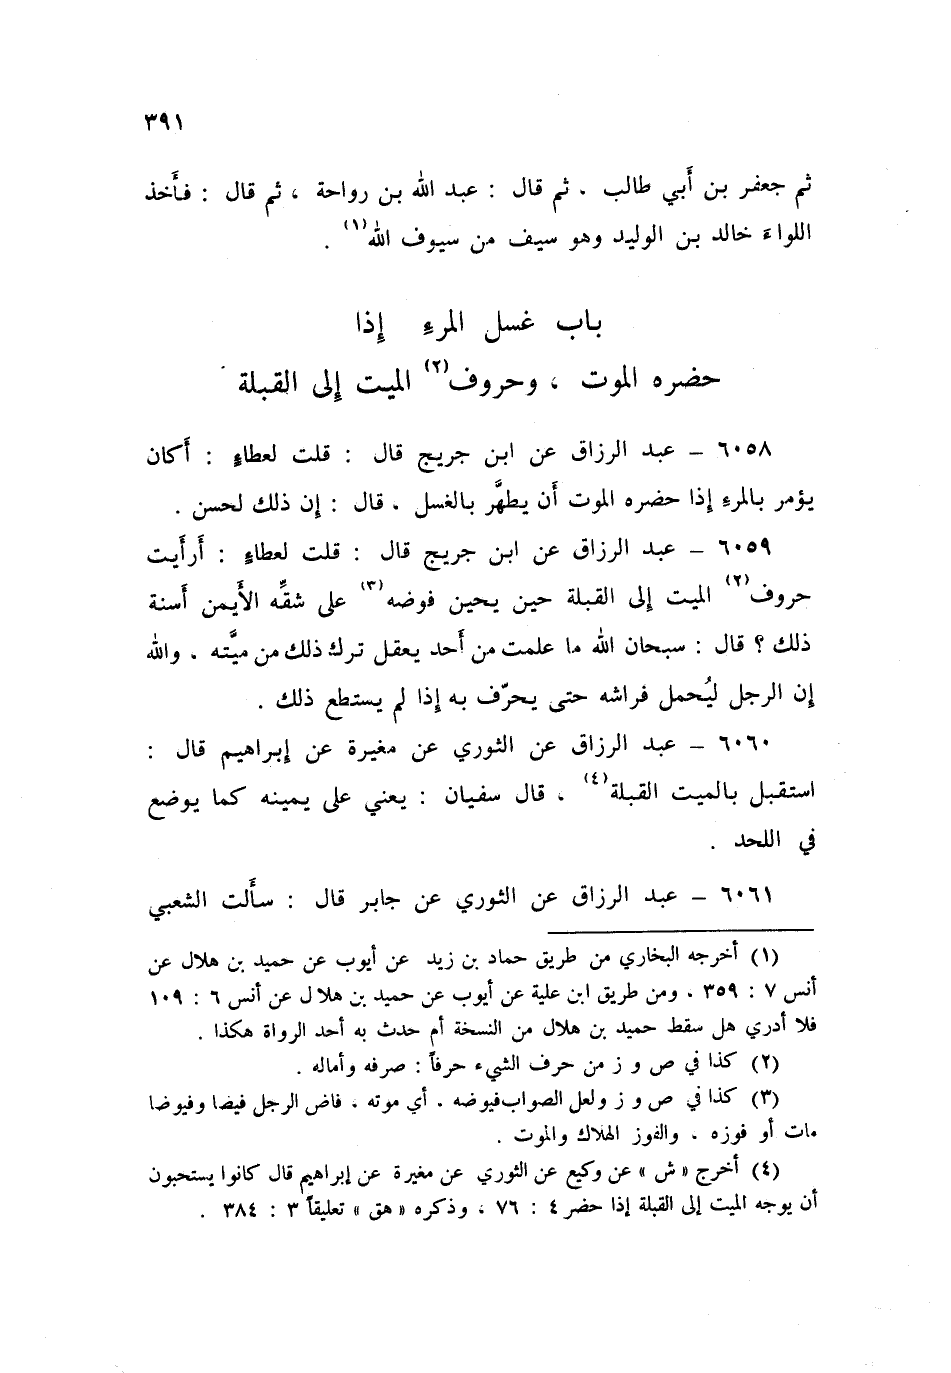 ٣٩١
ثم جعفر بن أَبي طالب . ثم قال : عبد الله بن رواحة ، ثم قال : فأَخذ
اللواءَ خالد بن الوليد وهو سيف من سيوف الله(١) .
باب غسل المرءِ إذا
حضره الموت ، وحروف(٢) الميت إلى القبلة
٦٠٥٨ – عبد الرزاق عن ابن جريج قال : قلت لعطاءٍ : أَكان
يؤمر بالمرءِ إذا حضره الموت أَن يطهَّر بالغسل . قال : إن ذلك لحسن .
٦٠٥٩ – عبد الرزاق عن ابن جريج قال : قلت لعطاءٍ : أَرأَيت
حروف(٢) الميت إلى القبلة حين يحين فوضه(٣) على شقِّه الأَيمن أَسنة
ذلك ؟ قال : سبحان الله ما علمت من أَحد يعقل ترك ذلك من ميَّته . والله
إن الرجل ليُحمل فراشه حتى يحرّف به إذا لم يستطع ذلك .
٦٠٦٠ – عبد الرزاق عن الثوري عن مغيرة عن إبراهيم قال :
استقبل بالميت القبلة(٤) ، قال سفيان : يعني على يمينه كما يوضع
في اللحد .
٦٠٦١ – عبد الرزاق عن الثوري عن جابر قال : سأَلت الشعبي
(١) أخرجه البخاري من طريق حماد بن زيد عن أيوب عن حميد بن هلال عن
أنس ٧ : ٣٥٩ . ومن طريق ابن علية عن أيوب عن حميد بن هلال عن أنس ٦ : ١٠٩
فلا أدري هل سقط حميد بن هلال من النسخة أم حدث به أحد الرواة هكذا .
(٢) كذا في ص و ز من حرف الشيء حرفاً : صرفه وأماله .
(٣) كذا في ص و ز ولعل الصواب فيوضه . أي موته ، فاض الرجل فيضا وفيوضا
مات أو فوزه . والفوز الهلاك والموت .
(٤) أخرج «ش» عن وكيع عن الثوري عن مغيرة عن إبراهيم قال كانوا يستحبون
أن يوجه الميت إلى القبلة إذا حضر ٤ : ٧٦ ، وذكره «هق» تعليقاً ٣ : ٣٨٤ .